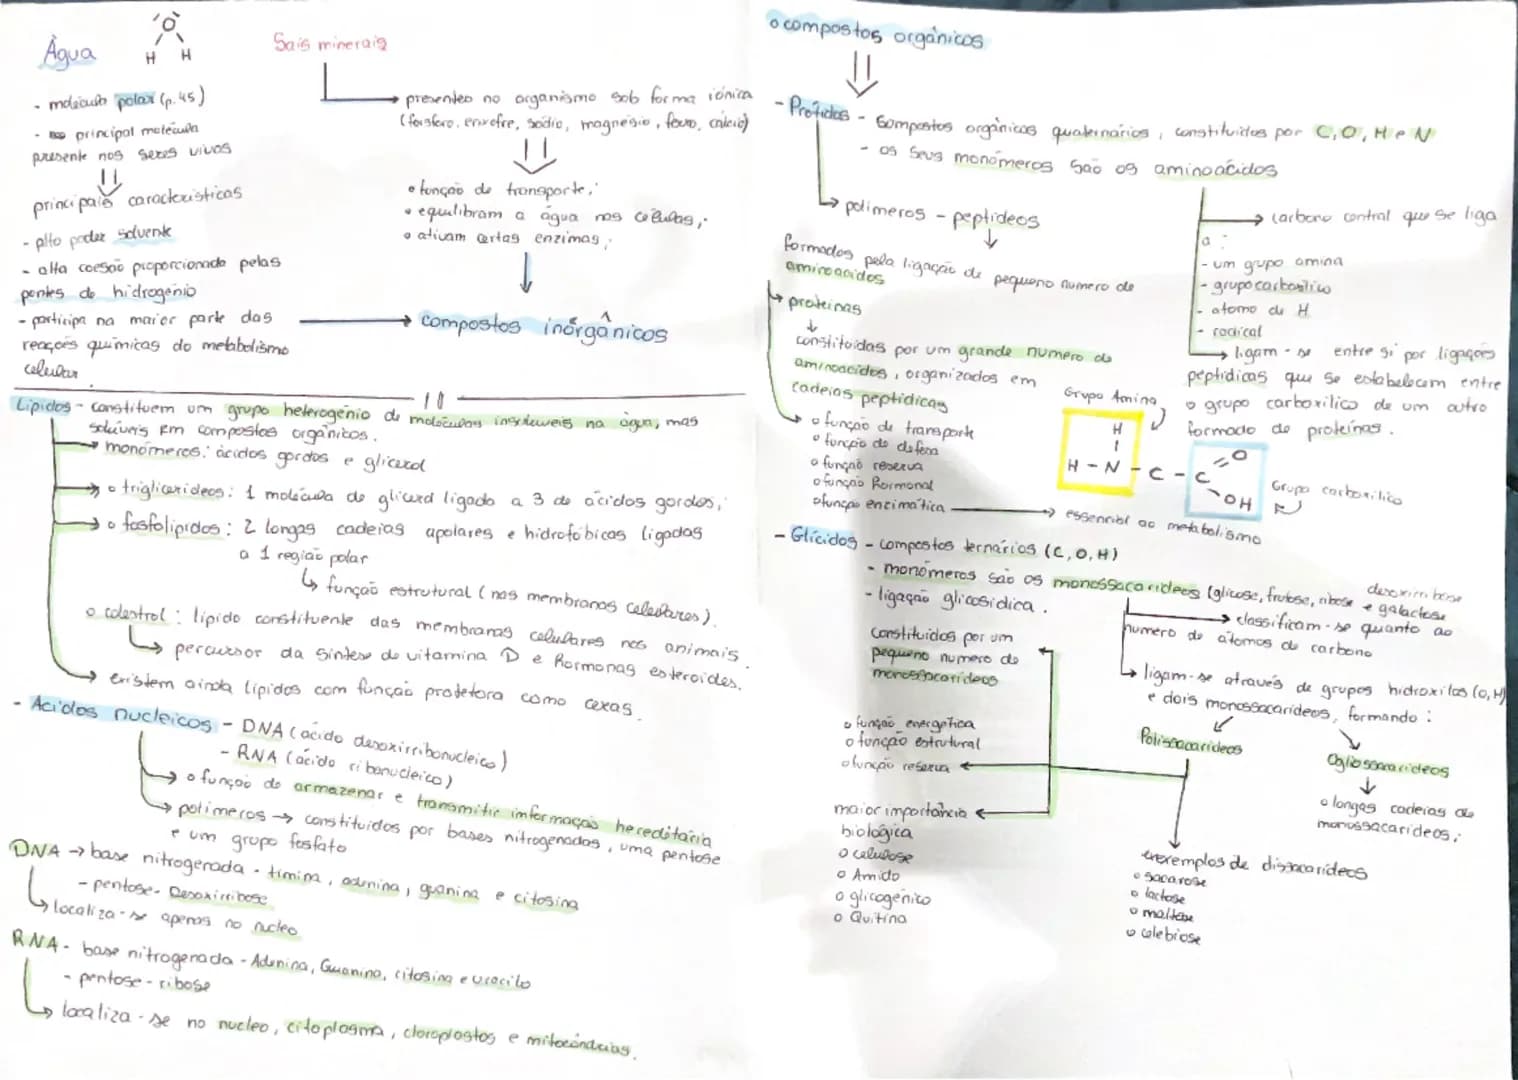 Água
O
H H
- molécula polar (p.45)
- principal molécula
presente nos seres vivos
principais características
- alto poder solvente
- alta coesão proporcionada pelas
pontes de hidrogénio
- participa na maior parte das
reações químicas do metabolismo
celular
Sais minerais
presentes no organismo sob forma iónica
(fósforo, enxofre, sódio, magnésio, ferro, cálcio)
• função de transporte;
• equilibram a água nas células;
• ativam certas enzimas;
compostos inorgânicos
Lípidos - constituem um grupo heterogénio de moléculas insolúveis na água, mas
solúveis em compostos orgânicos.
monómeros: ácidos gordos e glicerol
o triglicerídeos: 1 molécula de glicerol ligado a 3 de ácidos gordos;
o fosfolípidos: 2 longas cadeias apolares e hidrofóbicas ligadas
a 1 região polar
função estrutural (nas membranas celulares).
o colestrol: lípido constituente das membranas celulares nos animais.
percursor da síntese de vitamina D e hormonas esteroides.
existem ainda lípidos com função protetora como cexas.
- Ácidos nucleicos - DNA (ácido desoxirribonucleico)
- RNA (ácido ribonucleico)
o função de armazenar e transmitir informação hereditária
polímeros → constituídos por bases nitrogenadas, uma pentose
e um grupo fosfato
DNA → base nitrogenada - timina, adenina, guanina e citosina
- pentose - Desoxirribose
localiza-se apenas no nucleo
RNA - base nitrogenada - Adenina, Guanina, citosina e uracilo
- pentose - ribose
localiza-se no nucleo, citoplasma, cloroplastos e mitocôndrias.
o compostos orgânicos
- Prótidos - Compostos orgânicos quaternários, constituídos por C, O, H e N
- os seus monómeros são os aminoácidos
polímeros - peptídeos
formados pela ligação de pequeno numero de
aminoacidos
proteínas
constituídas por um grande numero de
aminoacidos, organizados em
cadeias peptídicas
o função de transporte
o função de defesa
o função reserva
o função hormonal
o função enzimática → essencial ao metabolismo
carbono central que se liga
a:
- um grupo amina
- grupo carboxílico
- atomo de H
- radical
ligam-se entre si por ligações
peptídicas que se estabelecem entre
o grupo carboxílico de um outro
formado de proteínas.
Grupo Amina
H
H - N - C - C
O
OH
Grupo carboxílico
- Glícidos - compostos ternários (C, O, H)
- monómeros são os monossacarídeos (glicose, frutose, ribose e galactose
- ligação glicosídica.
classificam-se quanto ao
numero de átomos de carbono
ligam-se através de grupos hidroxilos (O, H)
e dois monossacarídeos, formando:
Constituídos por um
pequeno numero de
monossacarídeos
o função energética
o função estrutural
o função reserva
maior importância
biológica
o celulose
o Amido
o glicogénico
o Quitina
Polissacarídeos
Ogliossacarideos
o longas cadeias de
monossacarídeos;
exemplos de dissacarídeos
o sacarose
o lactose
o maltose
o celebiose